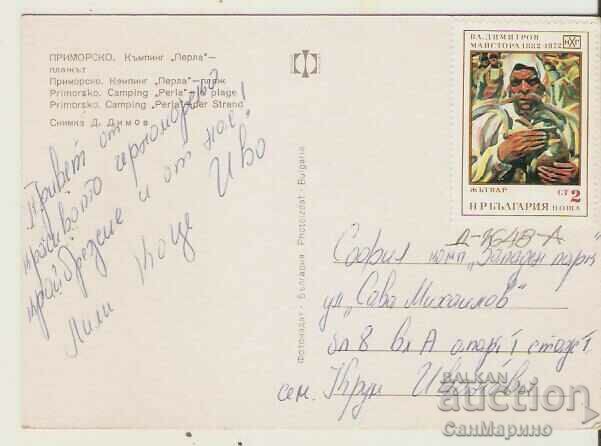 ПРИМОРСКО. Къмпинг „Перла"—
плажът
Приморско. Кемпинг „Перла"—пляж
Primorsko. Camping „Perla"—la plage
Primorsko. Camping „Perla"—der Strand
Снимка Д. Димов
Привет от
красивото черноморско
крайбрежие и от нас!
Лили Коце Иво
Фотоиздат · България Photoizdat · Bulgaria
ВЛ. ДИМИТРОВ
МАЙСТОРА 1882-1972
ЖЪТВАР СТ 2
НР БЪЛГАРИЯ ПОЩА
Д-7648-А
София комп „Западен парк"
ул „Сава Михайлов"
бл 8 вх А апарт 1
сем. Крум
BALKAN
auction
СанМарино